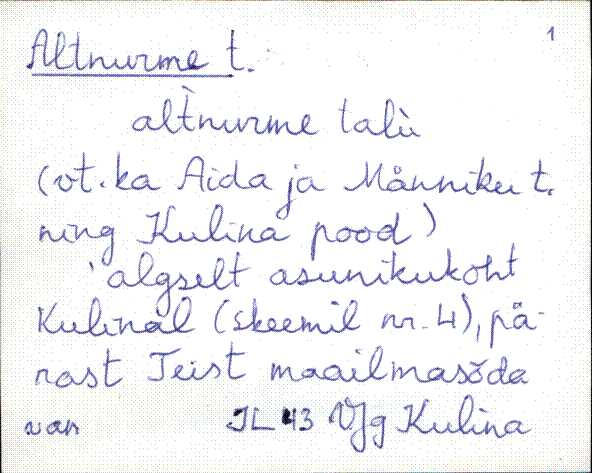 1
Altnurme t.
alt̀nurme talù
(vt. ka Aida ja Männiku t.
ning Kulina pood)
algselt asunikukoht
Kulinal (skeemil nr. 4), pä-
rast Teist maailmasõda
JL 43 VJg Kulina